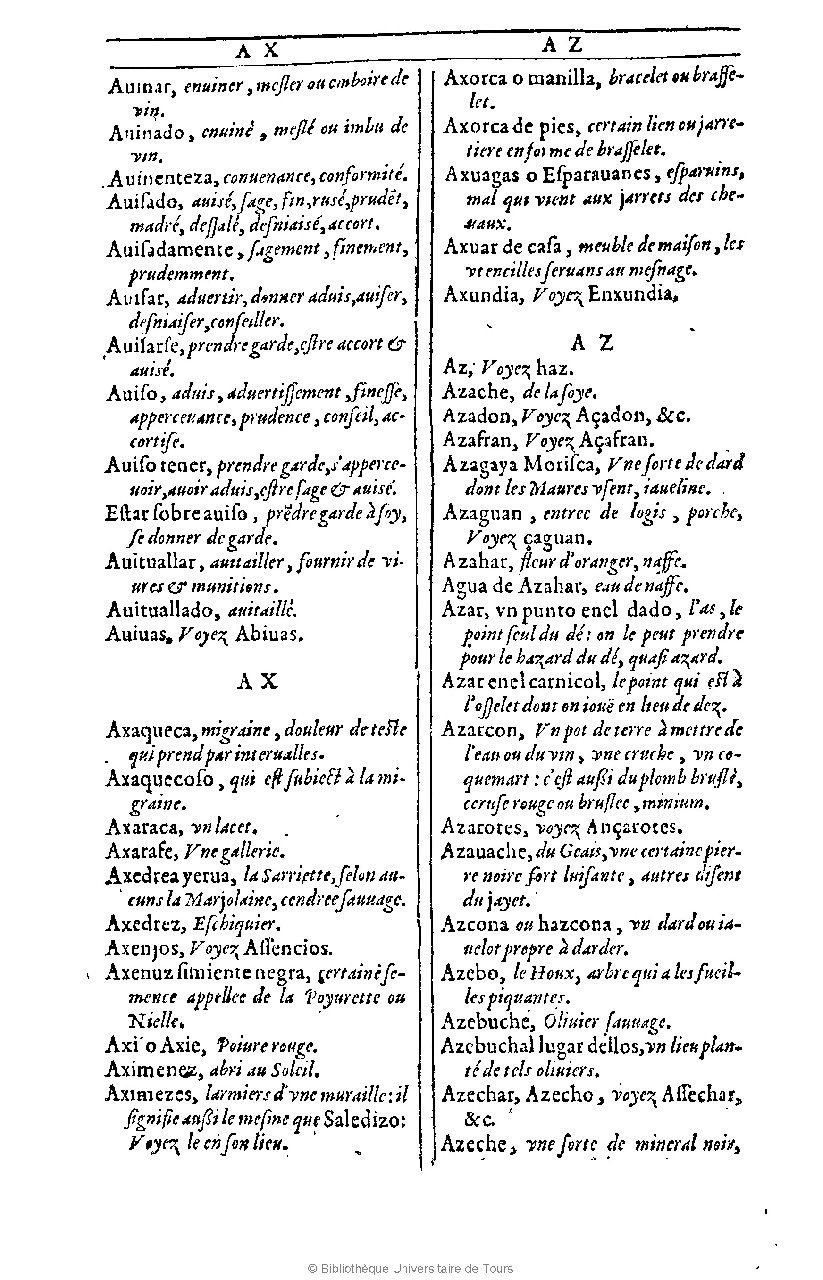 A X
Auinar, enuiner, mesler ou emboire de
vin.
Auinado, enuiné, meslé ou imbu de
vin.
Auinenteza, conuenance, conformité.
Auiſado, auisé, ſage, fin, rusé, prudẽt,
madré, deſſalé, deſniaisé, accort.
Auiſadamente, ſagement, finement,
prudemment.
Auiſar, aduertir, donner aduis, auiſer,
deſniaiſer, conſeiller.
Auiſarſe, prendre garde, eſtre accort &
auisé.
Auiſo, aduis, aduertiſſement, fineſſe,
apperceuance, prudence, conſeil, ac-
cortiſe.
Auiſo tener, prendre garde, s'apperce-
uoir, auoir aduis, eſtre ſage & auisé.
Eſtar ſobre auiſo, prẽdre garde à ſoy,
ſe donner de garde.
Auituallar, auitailler, fournir de vi-
ures & munitions.
Auituallado, auitaillé.
Auiuas, Voyez Abiuas.
A X
Axaqueca, migraine, douleur de teſte
qui prend par interualles.
Axaquecoſo, qui eſt ſubiect à la mi-
graine.
Axaraca, vn lacet.
Axarafe, Vne gallerie.
Axedrea yerua, la Sarriette, ſelon au-
cuns la Marjolaine, cendree ſauuage.
Axedrez, Eſchiquier.
Axenjos, Voyez Aſſencios.
Axenuz ſimiente negra, certaine ſe-
mence appellee de la Poyurette ou
Nielle.
Axi o Axie, Poiure rouge.
Aximenez, abri au Soleil.
Aximezes, larmiers d'vne muraille: il
ſignifie außi le meſme que Saledizo:
Voyez le en ſon lieu.
A Z
Axorca o manilla, bracelet ou braſſe-
let.
Axorca de pies, certain lien ou jarre-
tiere en forme de braſſelet.
Axuagas o Eſparauanes, eſparuins,
mal qui vient aux jarrets des che-
uaux.
Axuar de caſa, meuble de maiſon, les
vtencilles ſeruans au meſnage.
Axundia, Voyez Enxundia.
A Z
Az, Voyez haz.
Azache, de la ſoye.
Azadon, Voyez Açadon, &c.
Azafran, Voyez Açafran.
Azagaya Moriſca, Vne ſorte de dard
dont les Maures vſent, iaueline.
Azaguan, entree de logis, porche,
Voyez çaguan.
Azahar, fleur d'oranger, naffe.
Agua de Azahar, eau de naffe.
Azar, vn punto enel dado, l'as, le
point ſeul du dé: on le peut prendre
pour le hazard du dé, quaſi azard.
Azar enel carnicol, le point qui eſt à
l'oſſelet dont on iouë en lieu de dez.
Azarcon, Vn pot de terre à mettre de
l'eau ou du vin, vne cruche, vn co-
quemart: c'eſt außi du plomb bruſlé,
ceruſe rouge ou bruſlee, minium.
Azarotes, voyez Ançarotes.
Azauache, du Geais, vne certaine pier-
re noire fort luiſante, autres diſent
du jayet.
Azcona ou hazcona, vn dard ou ia-
uelot propre à darder.
Azebo, le Houx, arbre qui a les fueil-
les piquantes.
Azebuche, Oliuier ſauuage.
Azebuchal lugar dellos, vn lieu plan-
té de tels oliuiers.
Azechar, Azecho, voyez Aſſechar,
&c.
Azeche, vne ſorte de mineral noir,
© Bibliothèque Universitaire de Tours